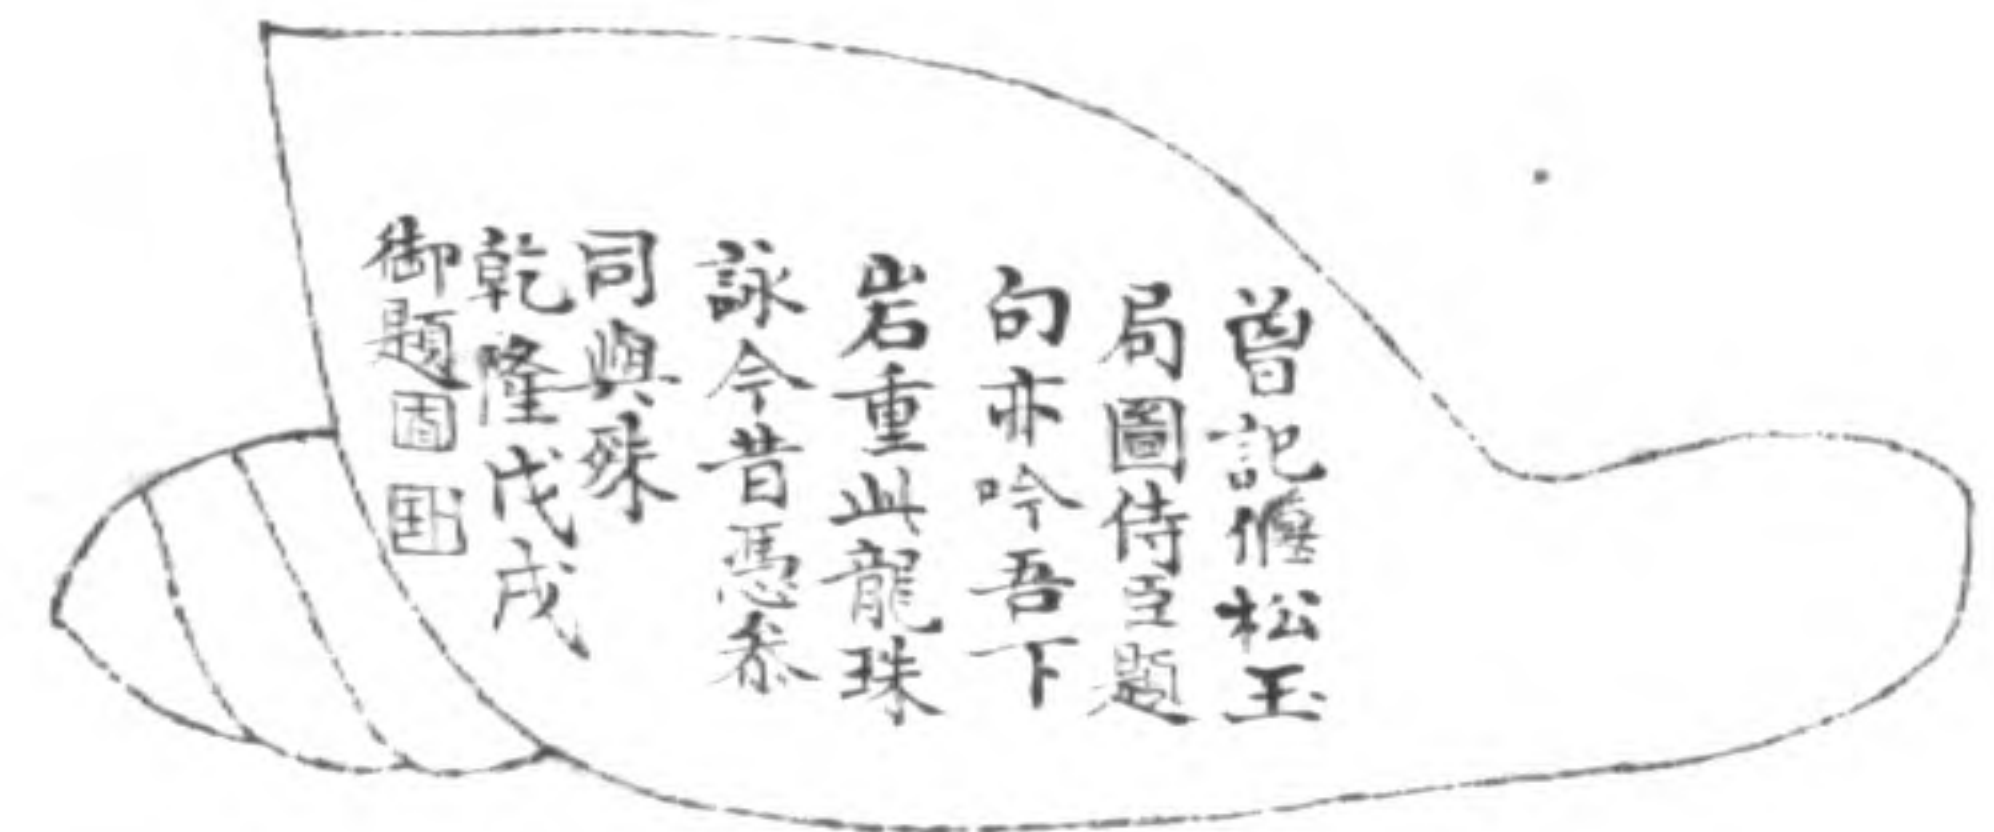 曾記松玉
局圖侍臣題
句亦吟吾下
岩重此龍珠
詠今昔憑叅
同與殊
乾隆戊戌
御題